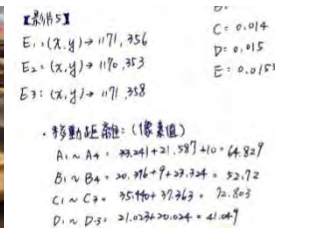 【影片5】
E₁:(x,y)→1171,356
E₂:(x,y)→1170,353
E₃:(x,y)→1171,358
C=0.014
D=0.015
E=0.015
・移動距離:(像素值)
A₁~A₄=33.241+21.587+10=64.829
B₁~B₄=20.396+9+23.324=52.72
C₁~C₃=35.440+37.363=72.803
D₁~D₃=21.023+20.024=41.047